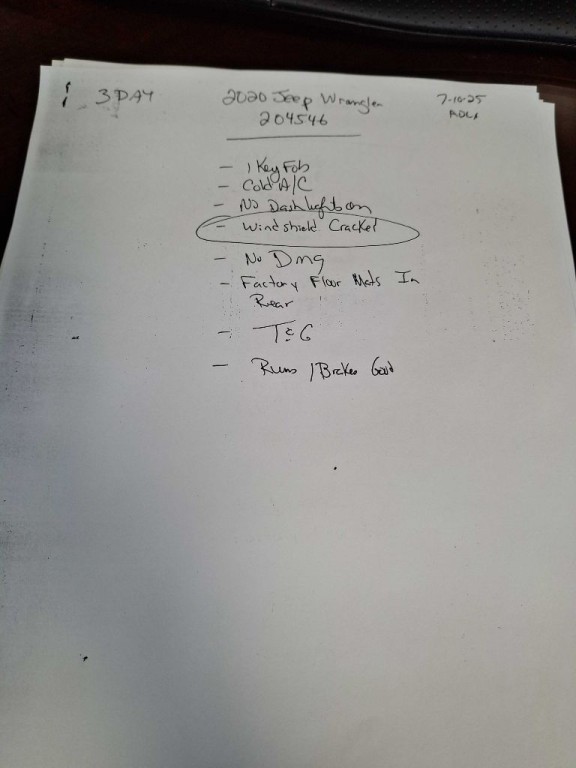 3 DAY 2020 Jeep Wrangler 7-10-25
204546
- 1 Key Fob
- Cold A/C
- No Dash lights on
- Windshield Cracked
- No Dmg
- Factory Floor Mats In
Rear
- T&G
- Runs / Brakes Good